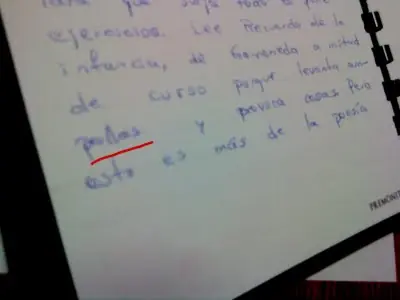 para que
ejercicios. Lee Recuerdo de la
infancia, de Machado a mitad
de curso porque levanta am-
pollas y provoca cosas. Pero
esto es más de la poesía
PREMONIT